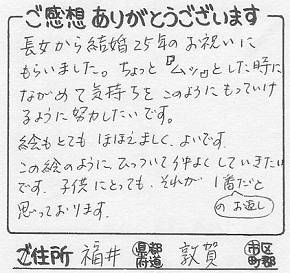 ご感想ありがとうございます
長女から結婚25年のお祝いに
もらいました。ちょっと『ムッ』とした時に
ながめて気持ちをこのようにもっていけ
るように努力したいです。
絵もとてもほほえましく、よいです。
この絵のように、ひっついて仲よくしていきたい
です。子供にとっても、それが1番だと
思っております。 のお返し
ご住所 福井 都道府県 敦賀 市区町郡